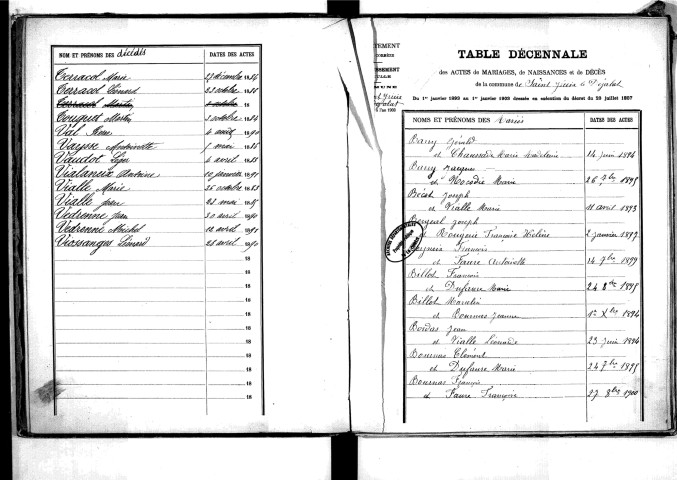 NOM ET PRÉNOMS DES décédés
DATES DES ACTES
Terracol Marie 23 décembre 1884
Terracol Léonard 23 octobre 1888
Terracol Martin octobre 18
Touquet Martin 3 octobre 1884
Val 4 août 1890
Vaysse Antoinette 1886
Vaudot Léger 6 avril 1888
Vialaneix Antoine 10 janvier 1891
Vialle Marie 26 octobre 1883
Vialle Jean 22 mai 1885
Vedrenne Jean 30 avril 1890
Vedrenne Michel 12 avril 1891
Viossanges Léonard 28 avril 1890
18
18
18
18
18
18
18
18
18
18
18
TEMENT
CORRÈZE
SSEMENT
TULLE
MUNE
TABLE DÉCENNALE
des ACTES de MARIAGES, de NAISSANCES et de DÉCÈS
de la commune de Saint
Du 1er janvier 1893 au 1er janvier 1903 dressée en exécution du décret du 20 juillet 1807
NOMS ET PRÉNOMS DES Mariés
DATES DES ACTES
Barry
et Chaussade Marie Madeleine 14 juin 1894
Barry Jacques
et Nocadie Marie 26 7bre 1895
Bécat Joseph
et Vialle Marie 11 avril 1893
Joseph
et Bougerie Françoise Hélène 2 janvier 1897
François
et Faure Antoinette 14 7bre 1899
Billot François
et Dufaure Marie 24 8bre 1895
Billot Martin
et Bournas Jeanne 1er Xbre 1894
Bordas Jean
et Vialle Léonarde 23 juin 1894
Bournas Clément
et Dufaure Marie 24 7bre 1895
Bournas François
et Faure Françoise 27 8bre 1900